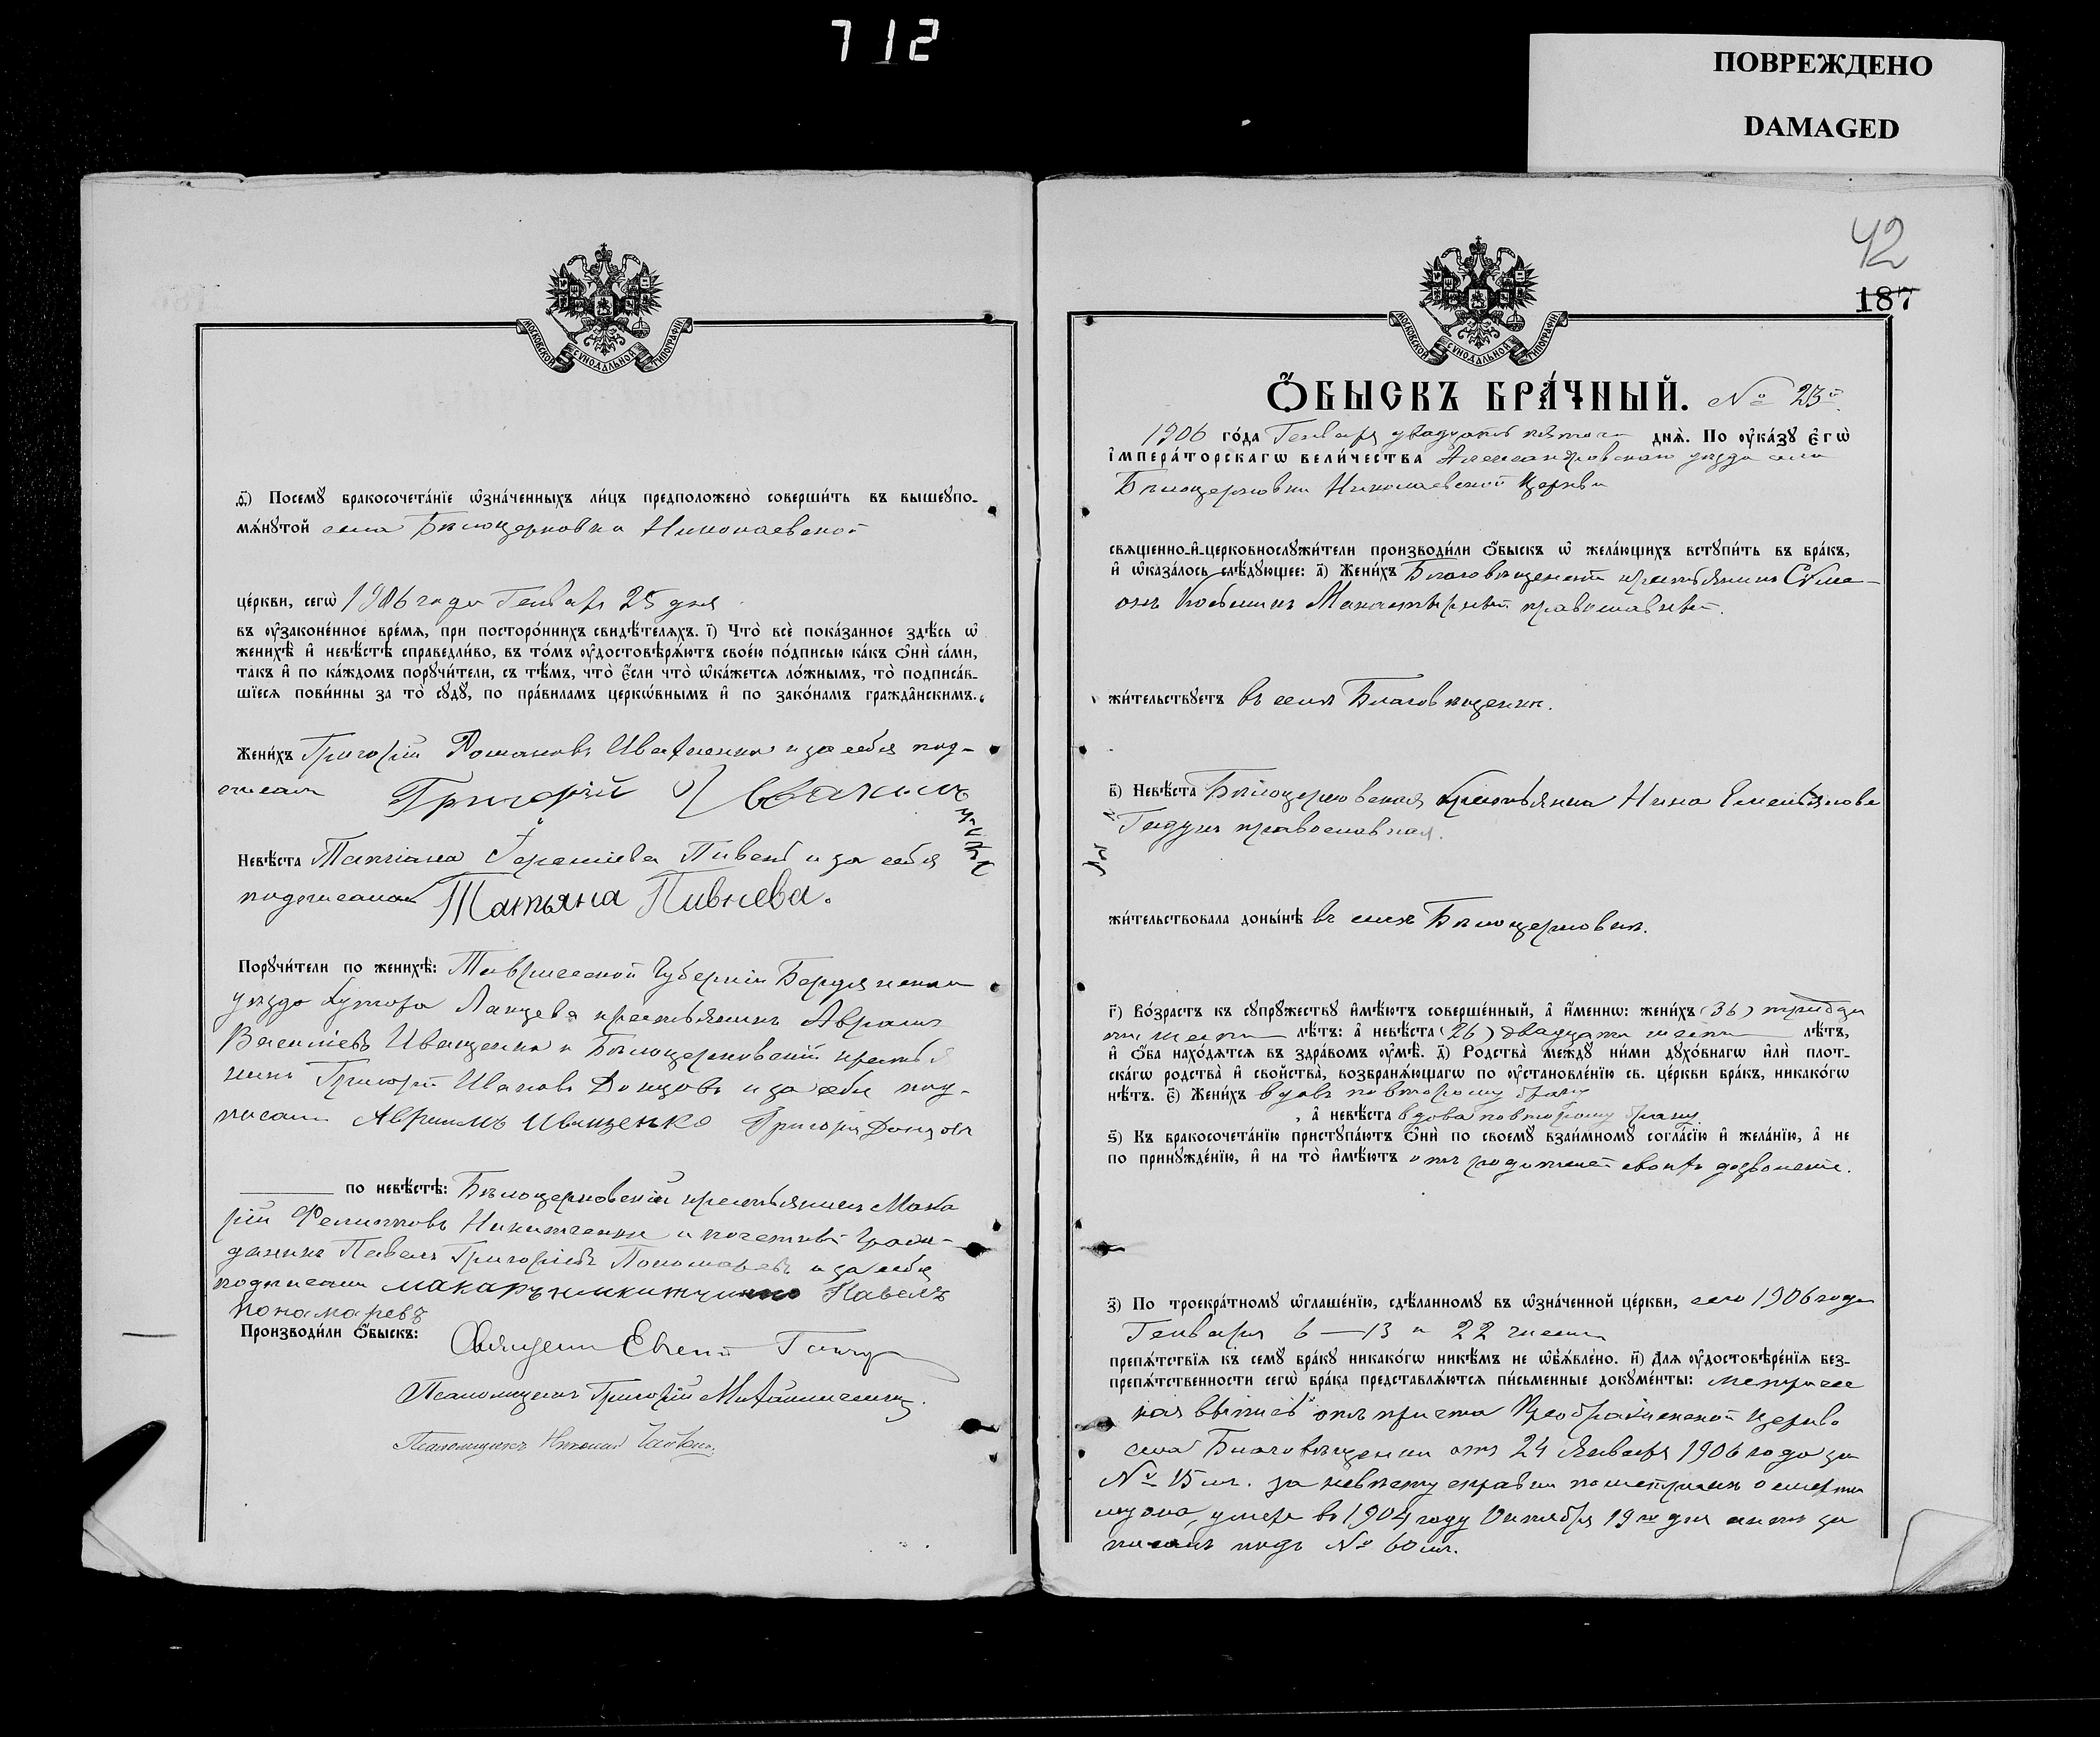 712
ПОВРЕЖДЕНО
DAMAGED
МОСКОВСКОЙ СѴНОДАЛЬНОЙ ТИПОГРАФІИ
ѳ҃) Посемꙋ бракосочета́нїе ѡ҆зна́ченныхъ ли́цъ предположено̀ соверши́ть въ вышеꙋпо-
мѧ́нꙋтой села Бѣлоцерковка Николаевской
це́ркви, сегѡ̀ 1906 года Генваря 25 дня
въ ᲂу҆зако́ненное вре́мѧ, при посторо́ннихъ свидѣ́телѧхъ. і҃) Что̀ всѐ пока́занное здѣ́сь ѡ҆
женихѣ̀ и҆ невѣ́стѣ справедли́во, въ то́мъ ᲂу҆достовѣрѧ́ютъ свое́ю по́дписью ка́къ ѻ҆нѝ са́ми,
та́къ и҆ по ка́ждомъ порꙋчи́тели, съ тѣ́мъ, что̀ є҆́сли что̀ ѡ҆ка́жетсѧ ло́жнымъ, то̀ подписа́в-
шїесѧ пови́нны за то̀ сꙋдꙋ̀, по пра́виламъ церкѡ́внымъ и҆ по зако́намъ гражда̑нскимъ.
Жени́хъ Григорій Романовъ Иващенко и за себя под-
писали Григорій Иващенко
Невѣ́ста Татіана Пивень и за себя
подписалась Татьяна Пивнева.
Порꙋчи́тели по женихѣ̀: Таврической Губерніи Бердянскаго
уѣзда хутора Ланцева крестьянинъ Авраамъ
Василіевъ Иващенко и Бѣлоцерковскій крестья
нинъ Григорій Ивановъ Донцовъ и за себя под-
писали Авраамъ Иващенко Григорій Донцовъ
по невѣ́стѣ: Бѣлоцерковскій крестьянинъ Мака
рій Филиповъ Никитченко и почетный граж-
данинъ Павелъ Григоріевъ Пономаревъ и за себя
подписали макаръ никитченко Павелъ
Понамаревъ
Производи́ли ѻ҆́быскъ: Священникъ Евгеній
Псаломщикъ Григорій
Псаломщикъ Николай
42
187
МОСКОВСКОЙ СѴНОДАЛЬНОЙ ТИПОГРАФІИ
Ѻ҆́БЫСКЪ БРА́ЧНЫЙ. № 23й
1906 го́да Генваря двадцать пятаго днѧ̀. По ᲂу҆ка́зꙋ є҆гѡ̀
і҆мпера́торскагѡ вели́чества Александровскаго уѣзда села
Бѣлоцерковки Николаевской Церкви
свѧщенно-и҆-церковнослꙋжи́тели производи́ли ѻ҆́быскъ ѡ҆ жела́ющихъ встꙋпи́ть въ бра́къ,
и҆ ѡ҆каза́лось слѣ́дꙋющее: а҃) Жени́хъ Благовѣщенскій крестьянинъ Сѵме-
онъ православный.
жи́тельствꙋетъ въ селѣ Благовѣщенкѣ.
в҃) Невѣ́ста Бѣлоцерковская крестьянка Нина Емельянова
Гедунъ православная.
жи́тельствовала доны́нѣ въ селѣ Бѣлоцерковкѣ.
г҃) Во́зрастъ къ сꙋпрꙋ́жествꙋ и҆мѣ́ютъ соверше́нный, а҆ и҆́меннѡ: жени́хъ (36) тридца
ти шести лѣ́тъ: а҆ невѣ́ста (26) двадцати шести лѣ́тъ,
и҆ ѻ҆́ба нахо́дѧтсѧ въ здра́вомъ ᲂу҆мѣ̀. д҃) Родства̀ междꙋ̀ ни́ми дꙋхо́внагѡ и҆лѝ плот-
ска́гѡ родства̀ и҆ сво́йства̀, возбранѧ́ющагѡ по ᲂу҆становле́нїю св. це́ркви бра́къ, никако́гѡ
нѣ́тъ. є҃) Жени́хъ вдовъ по второму браку
, а҆ невѣ́ста вдова по второму браку
ѕ҃) Къ бракосочета́нїю пристꙋпа́ютъ ѻ҆нѝ по своемꙋ̀ взаи́мномꙋ согла́сїю и҆ жела́нїю, а҆ не
по принꙋжде́нїю, и҆ на то̀ и҆мѣ́ютъ отъ родителей своихъ дозволеніе.
з҃) По троекра́тномꙋ ѡ҆глаше́нїю, сдѣ́ланномꙋ въ ѡ҆зна́ченной це́ркви, сего 1906 года
Генваря 6 — 13 и 22 числа
препѧ́тствїѧ къ семꙋ̀ бра́кꙋ никако́гѡ никѣ́мъ не ѡ҆б̾ѧвлено̀. и҃) Длѧ ᲂу҆достовѣре́нїѧ без-
препѧ́тственности сегѡ̀ бра́ка представлѧ́ютсѧ пи́сьменные докꙋме́нты: метриче
кая выпись отъ причта Преображенской Церкви
села Благовѣщенки отъ 24 Января 1906 года за
№ 15м. за невѣсту справка по метрикѣ о смерти
мужа, умеръ въ 1904 году Октября 19го дня актъ за
писанъ подъ № 60м.